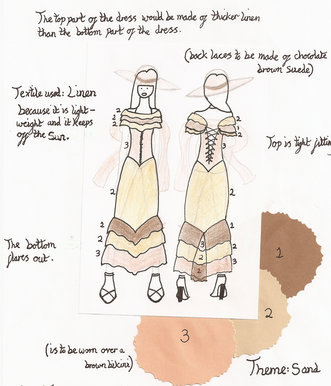 The top part of the dress would be made of thicker linen
than the bottom part of the dress.
(back laces to be made of chocolate
brown suede)
Textile used: Linen
because it is light-
weight and it keeps
off the Sun.
Top is tight fittin
2
2
2
3
2
2
2
3
2
2
1
2
3
1
3
2
3
2
The bottom
flares out.
1
2
3
(is to be worn over a
brown bikini)
Theme: Sand